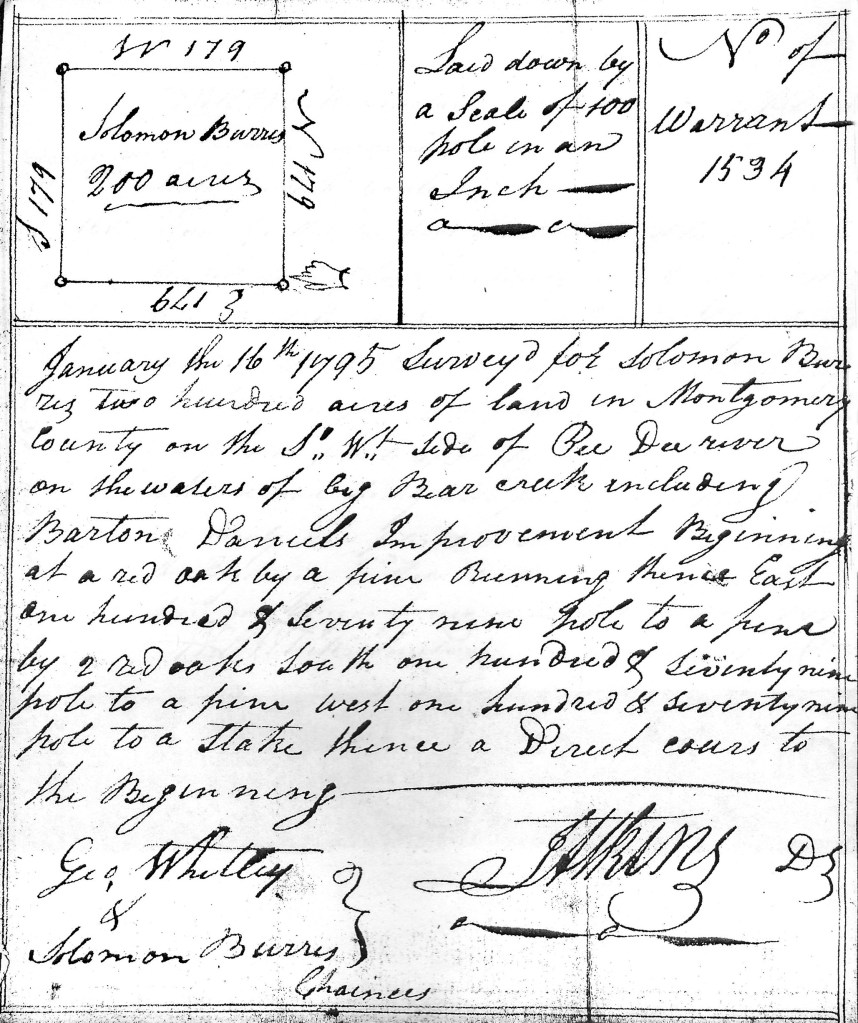 W 179
Solomon Burris
200 acres
S 179
N 179
E 179
Laid down by
a Scale of 100
pole in an
Inch
No of
Warrant
1534
January the 16th 1795 Survey'd for Solomon Bur
ris two hundred acres of land in Montgomery
County on the So. Wt. side of Pee Dee river
on the waters of big Bear creek including
Barton Daniels Improvement Beginning
at a red oak by a pine Running thence East
one hundred & seventy nine pole to a pine
by 2 red oaks South one hundred & seventy nine
pole to a pine west one hundred & seventy nine
pole to a Stake thence a Direct cours to
the Beginning
Geo. Whitley
&
Solomon Burris
Chainees
Atkins DS